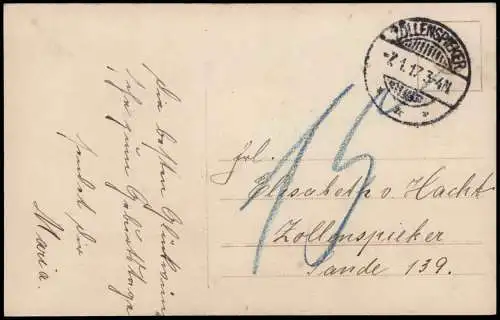 Die besten Glückwünsche
zum Geburtstage
sendet Dir
Maria.
ZOLLENSPIEKER
-7.1.17.3-4N.
15
Frl.
Elisabeth v. Hacht
Zollenspieker
Sande 139.